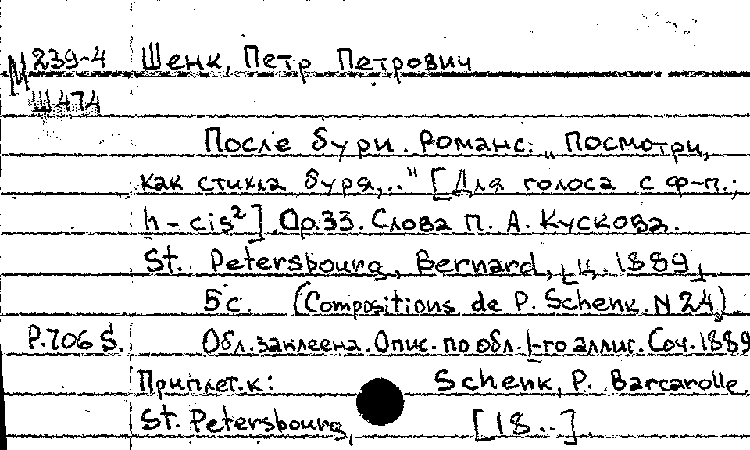 М 239-4 Шенк, Петр Петрович
Ш474
После бури. Романс. „Посмотри,
как стихла буря,.." [Для голоса с ф-п.;
h - cis²]. Ор.33. Слова П. А. Кускова.
St. Petersbourg, Bernard, [ц. 1889]
5с. (Compositions de P. Schenk. N 24)
P.706 S. Обл. заклеена. Опис. по обл. 1-го аллиг. Соч. 1889
Приплет. к: Schenk, P. Barcarolle,
St. Petersbourg, [18..]